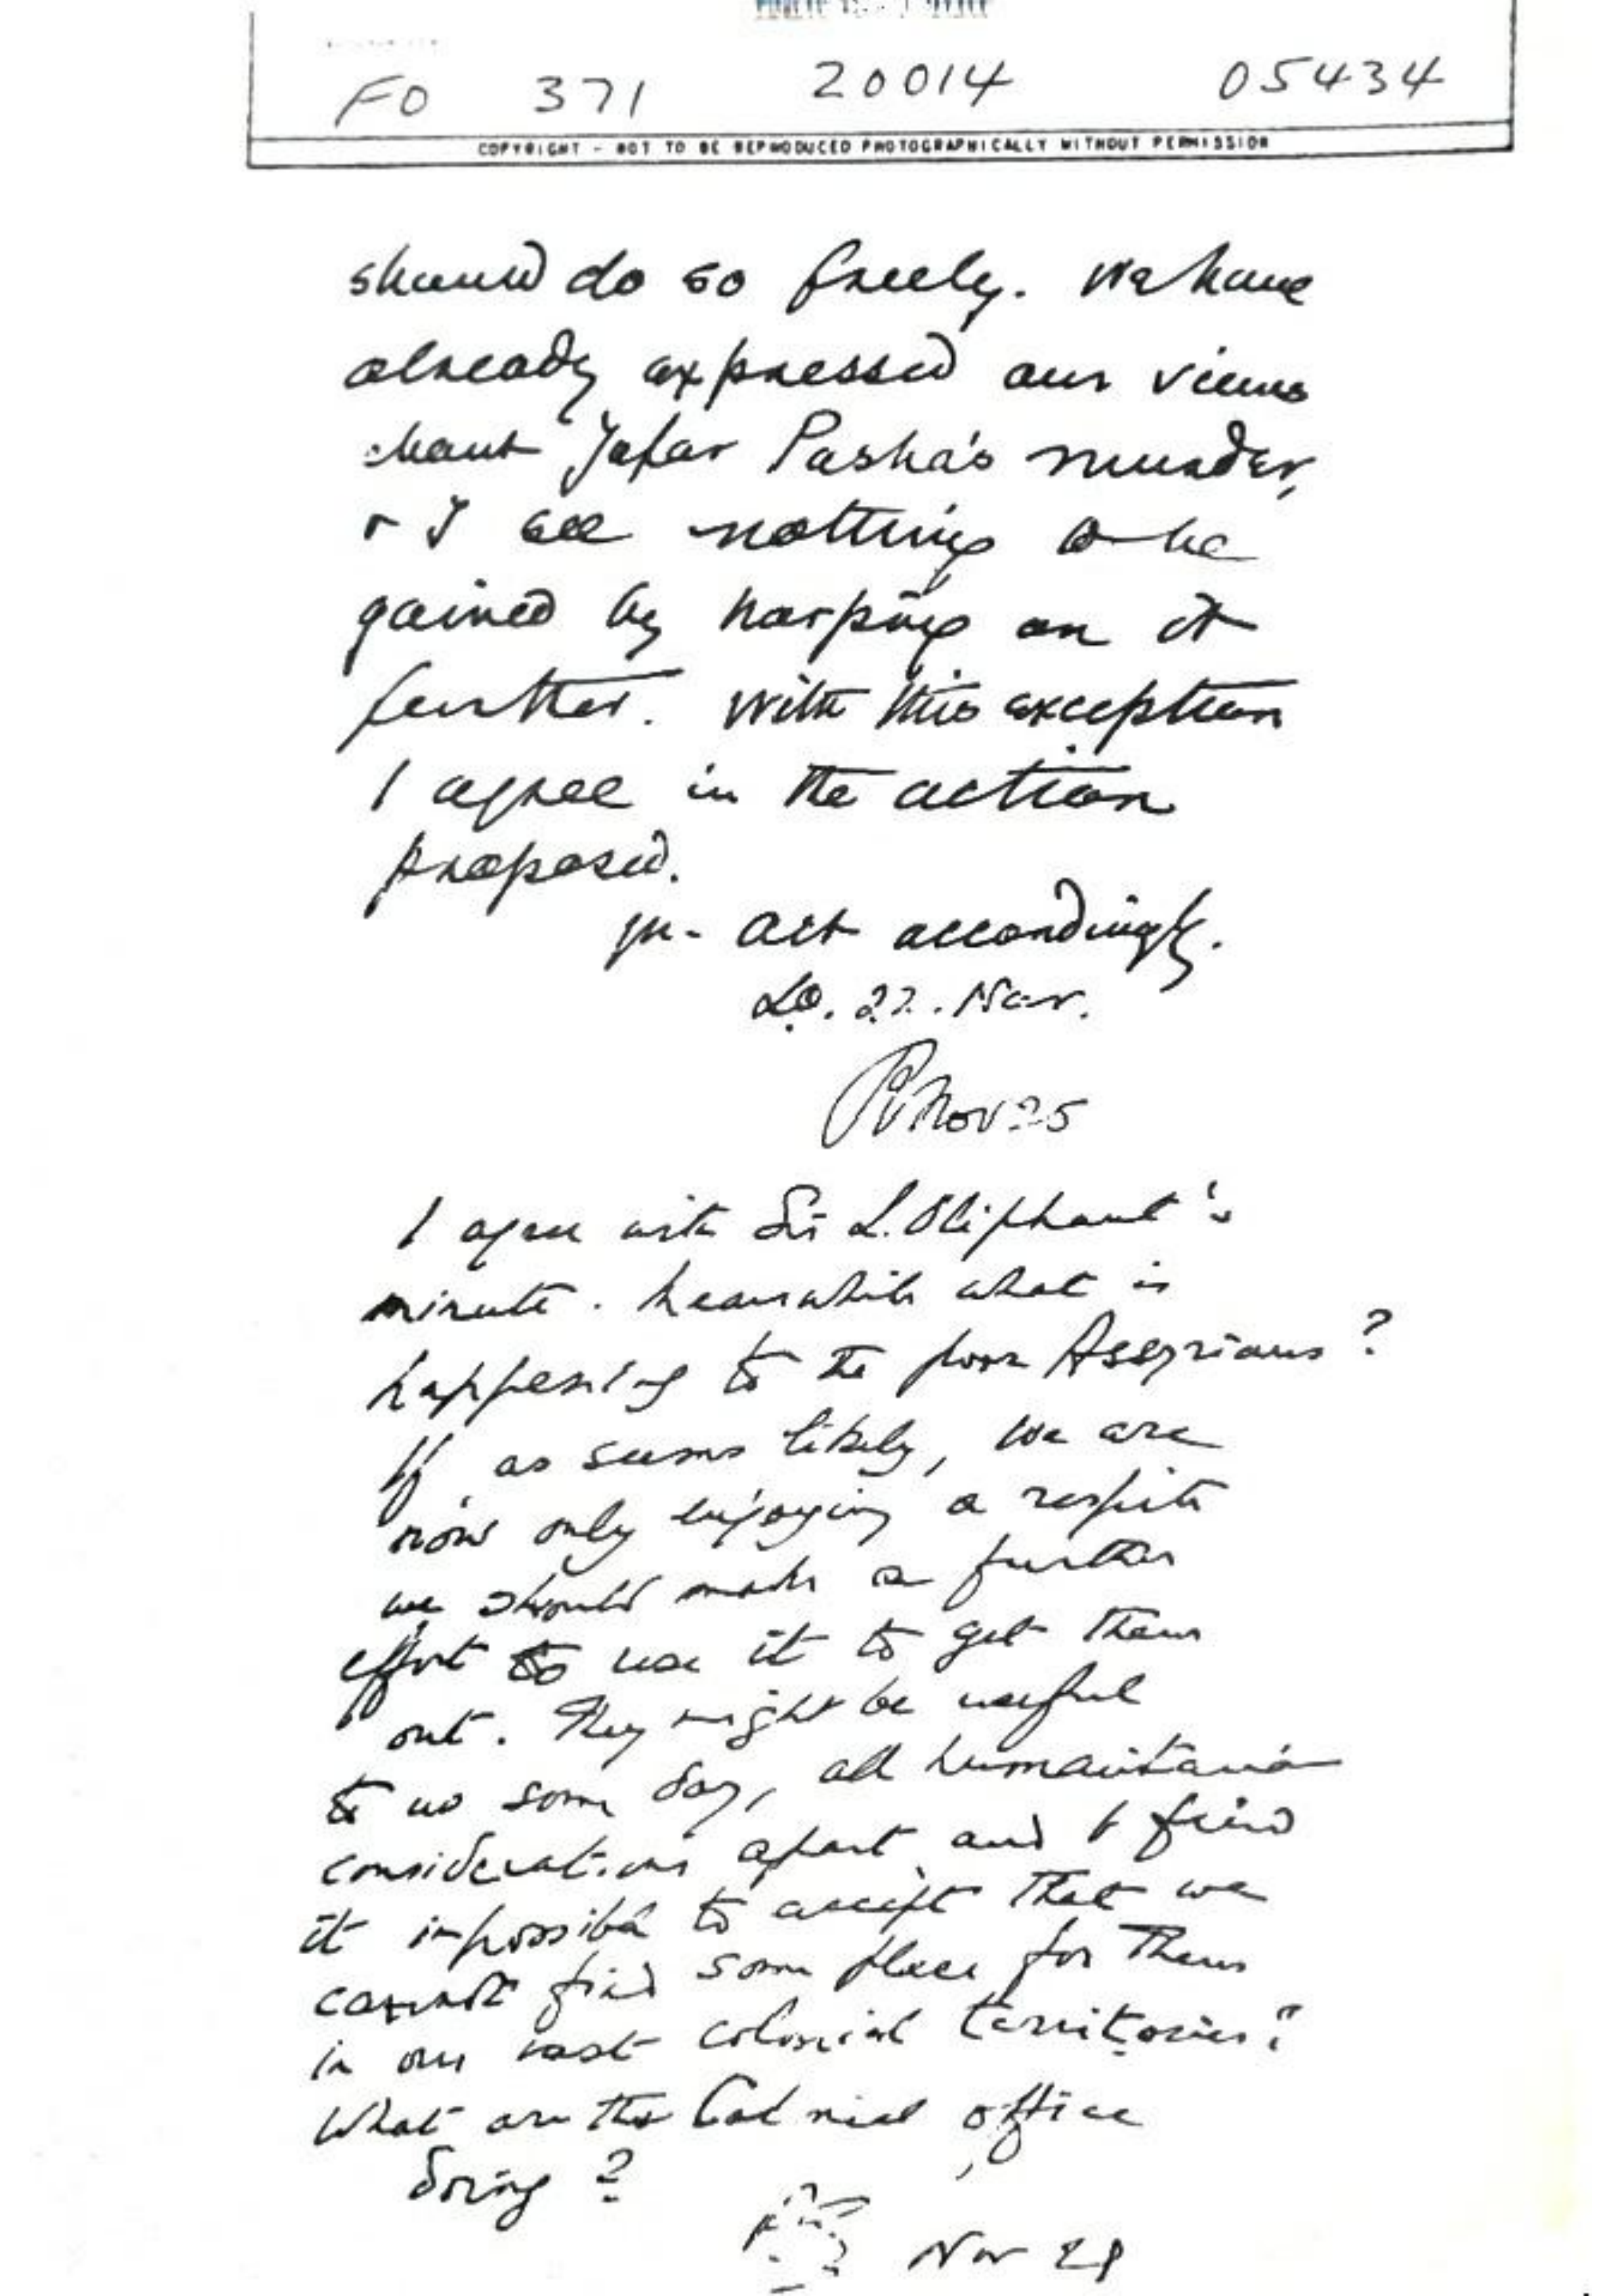 FO 371 20014 05434
COPYRIGHT - NOT TO BE REPRODUCED PHOTOGRAPHICALLY WITHOUT PERMISSION
should do so freely. We have
already expressed our views
about Jafar Pasha's murder,
& I see nothing to be
gained by harping on it
further. With this exception
I agree in the action
proposed.
act accordingly.
L.O. 22. Nov.
Nov 25
I agree with Sir L. Oliphant's
minute. Meanwhile what is
happening to the poor Assyrians?
If, as seems likely, we are
now only enjoying a respite
we should make a further
effort to use it to get them
out. They might be useful
to us some day, all humanitarian
considerations apart and I find
it impossible to accept that we
cannot find some place for them
in our vast colonial territories?
What are the Colonial Office
doing?
Nov 28